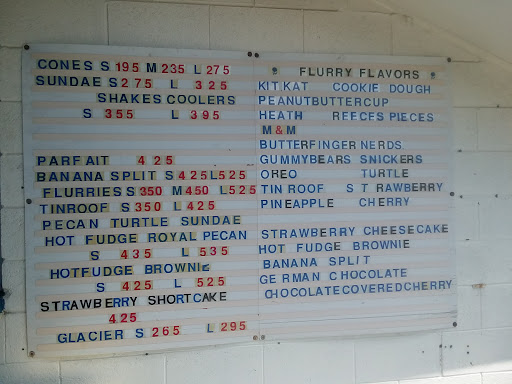 CONES S 195 M 235 L 275
SUNDAE S 275 L 325
SHAKES COOLERS
S 355 L 395
PARFAIT 425
BANANA SPLIT S 425 L 525
FLURRIES S 350 M 450 L 525
TINROOF S 350 L 425
PECAN TURTLE SUNDAE
HOT FUDGE ROYAL PECAN
S 435 L 535
HOTFUDGE BROWNIE
S 425 L 525
STRAWBERRY SHORTCAKE
425
GLACIER S 265 L 295
FLURRY FLAVORS
KITKAT COOKIE DOUGH
PEANUTBUTTERCUP
HEATH REECES PIECES
M&M
BUTTERFINGER NERDS
GUMMYBEARS SNICKERS
OREO TURTLE
TIN ROOF STRAWBERRY
PINEAPPLE CHERRY
STRAWBERRY CHEESECAKE
HOT FUDGE BROWNIE
BANANA SPLIT
GERMAN CHOCOLATE
CHOCOLATECOVEREDCHERRY